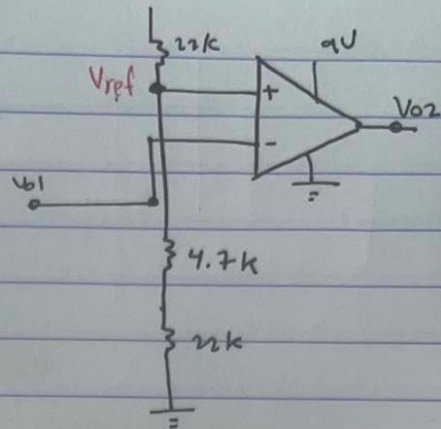 22k
9V
Vref
+
Vo2
-
Vo1
4.7k
22k